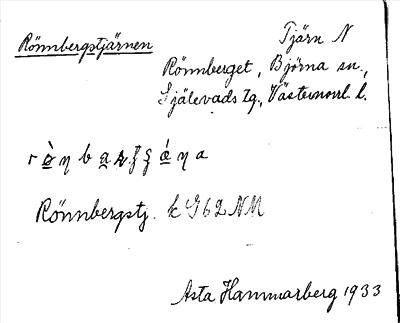 Rönnbergstjärnen
Tjärn N
Rönnberget, Björna sn.,
Själevads tg., Västernorrl. l.
Rönnbergstj. k G62 NM
Asta Hammarberg 1933